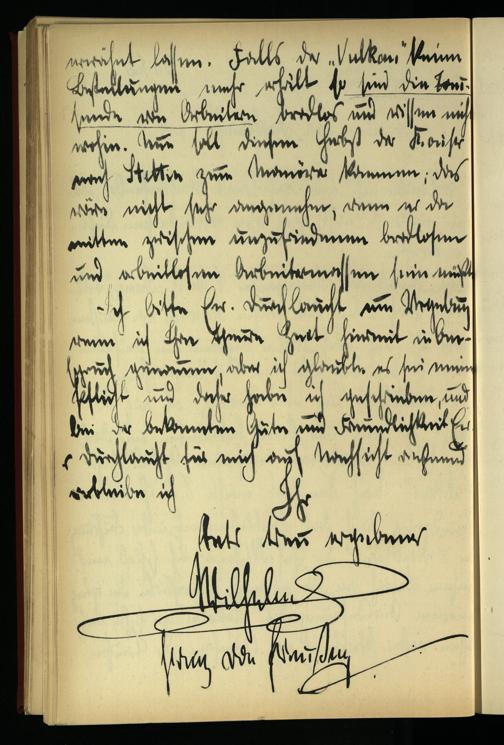 erwähnt lassen. Falls der „Vulkan" keine
Bestellungen mehr erhält so sind die Tau-
sende von Arbeitern brodlos und wissen nicht
wohin. Nun soll diesen Herbst der Kaiser
nach Stettin zum Manöver kommen; das
wäre nicht sehr angenehm, wenn er da
mitten zwischen unzufriedenen brodlosen
und arbeitlosen Arbeitermassen sein müßte
Ich bitte Ew. Durchlaucht um Vergebung
wenn ich Ihre theure Zeit hiermit in An-
spruch genommen, aber ich glaubte es sei meine
Pflicht und daher habe ich geschrieben, und
bei der bekannten Güte und Freundlichkeit Ew
Durchlaucht für mich auf Nachsicht rechnend
verbleibe ich
Ihr
stets treu ergebener
Wilhelm
Prinz von Preußen